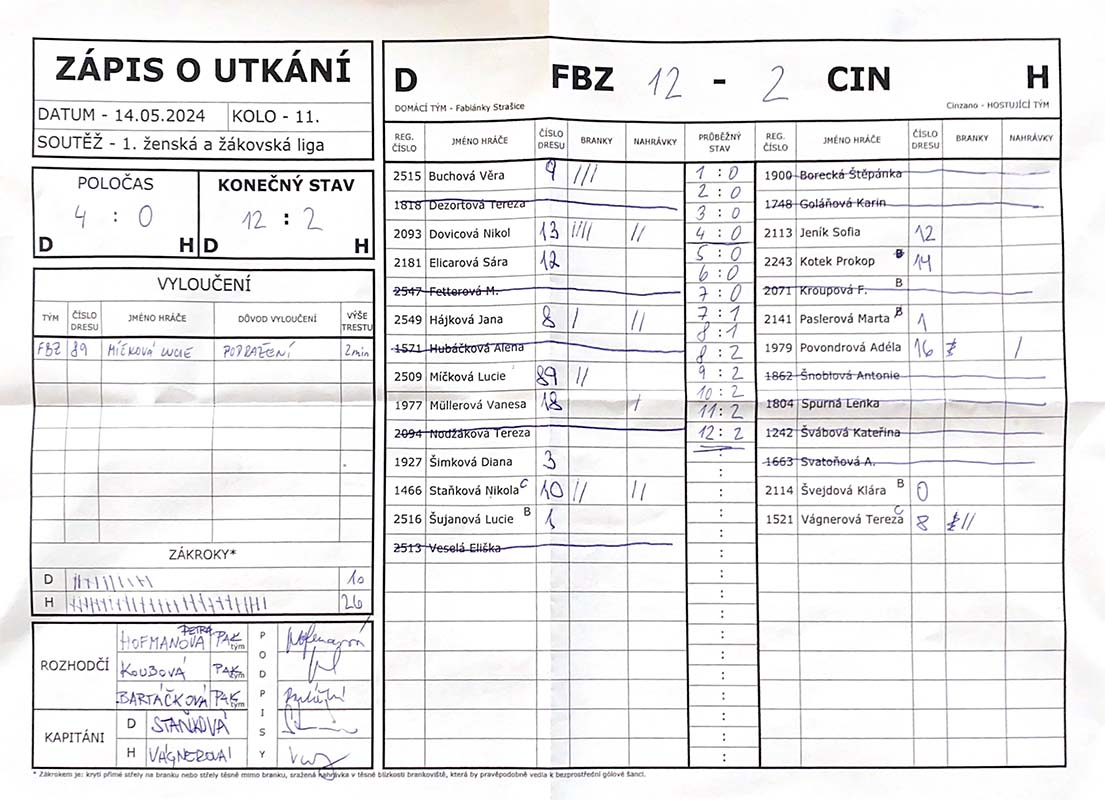 ZÁPIS O UTKÁNÍ
DATUM - 14.05.2024 KOLO - 11.
SOUTĚŽ - 1. ženská a žákovská liga
POLOČAS
4 : 0
D H
KONEČNÝ STAV
12 : 2
D H
VYLOUČENÍ
TÝM ČÍSLO DRESU JMÉNO HRÁČE DŮVOD VYLOUČENÍ VÝŠE TRESTU
FBZ 89 MÍČKOVÁ LUCIE PODRAŽENÍ 2min
ZÁKROKY*
D 10
H 26
ROZHODČÍ
HOFMANOVÁ PETRA PAK tým
KOUBOVÁ PAK tým
BARTÁČKOVÁ PAK tým
KAPITÁNI
D STAŇKOVÁ
H VÁGNEROVÁ
PODPISY
D FBZ 12 - 2 CIN H
DOMÁCÍ TÝM - Fabiánky Strašice Cinzano - HOSTUJÍCÍ TÝM
REG. ČÍSLO JMÉNO HRÁČE ČÍSLO DRESU BRANKY NAHRÁVKY
2515 Buchová Věra 9 ///
1818 Dezortová Tereza
2093 Dovicová Nikol 13 //// //
2181 Elicarová Sára 12
2547 Fetterová M.
2549 Hájková Jana 8 / //
1571 Hubáčková Alena
2509 Míčková Lucie 89 //
1977 Müllerová Vanesa 18 /
2094 Nodžáková Tereza
1927 Šimková Diana 3
1466 Staňková Nikola C 10 // //
2516 Šujanová Lucie B 1
2513 Veselá Eliška
PRŮBĚŽNÝ STAV
1 : 0
2 : 0
3 : 0
4 : 0
5 : 0
6 : 0
7 : 0
7 : 1
8 : 1
8 : 2
9 : 2
10 : 2
11 : 2
12 : 2
REG. ČÍSLO JMÉNO HRÁČE ČÍSLO DRESU BRANKY NAHRÁVKY
1900 Borecká Štěpánka
1748 Goláňová Karin
2113 Jeník Sofia 12
2243 Kotek Prokop 14
2071 Kroupová F. B
2141 Paslerová Marta B 1
1979 Povondrová Adéla 16 /
1862 Šnoblová Antonie
1804 Spurná Lenka
1242 Švábová Kateřina
1663 Svatoňová A.
2114 Švejdová Klára B 0
1521 Vágnerová Tereza C 8 //
* Zákrokem je: krytí přímé střely na branku nebo střely těsně mimo branku, sražená nahrávka v těsné blízkosti brankoviště, která by pravěpodobně vedla k bezprostřední gólové šanci.